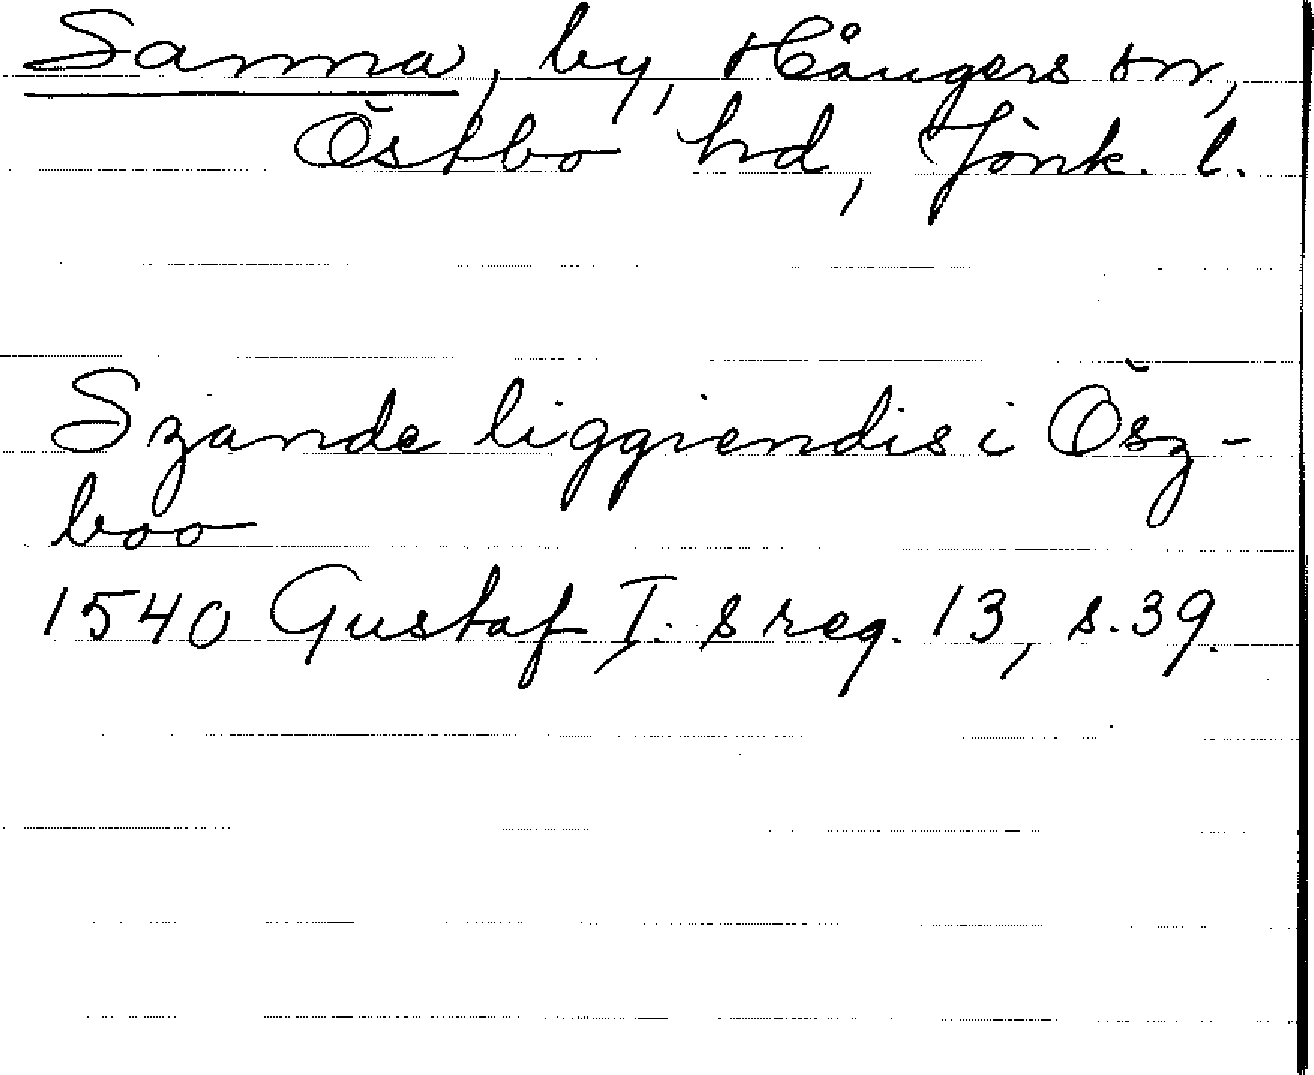 Sanna, by, Hångers sn,
Östbo hd, Jönk. l.
Szande liggiendis i Ösz-
boo
1540 Gustaf I:s reg. 13, s. 39.